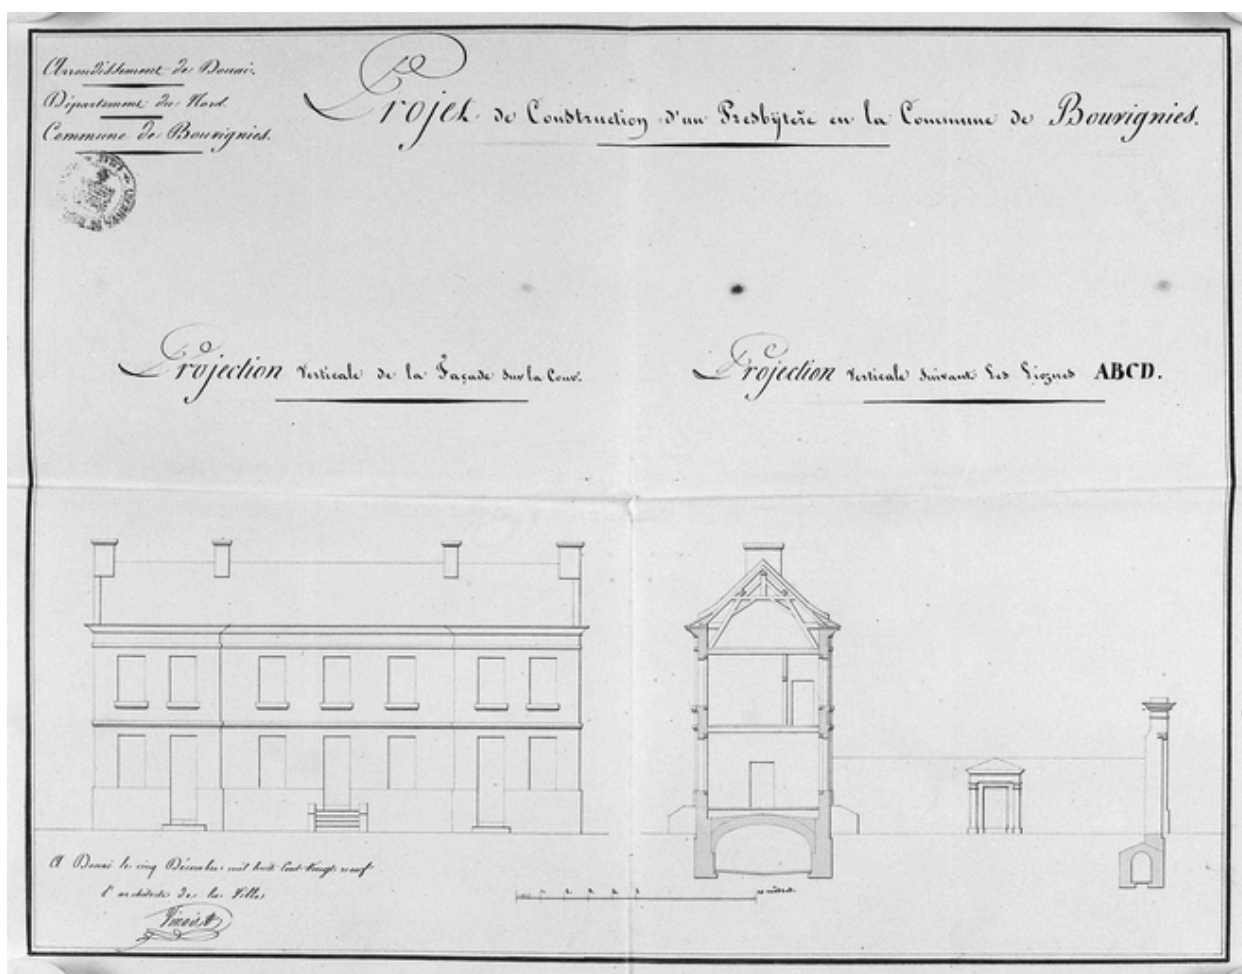 Arrondissement de Douai.
Département du Nord.
Commune de Bouvignies.
Projet de Construction d'un Presbytère en la Commune de Bouvignies.
Projection Verticale de la Façade sur la Cour.
Projection Verticale suivant les Lignes ABCD.
A Douai le cinq Décembre mil huit Cent Vingt neuf
l'architecte de la Ville